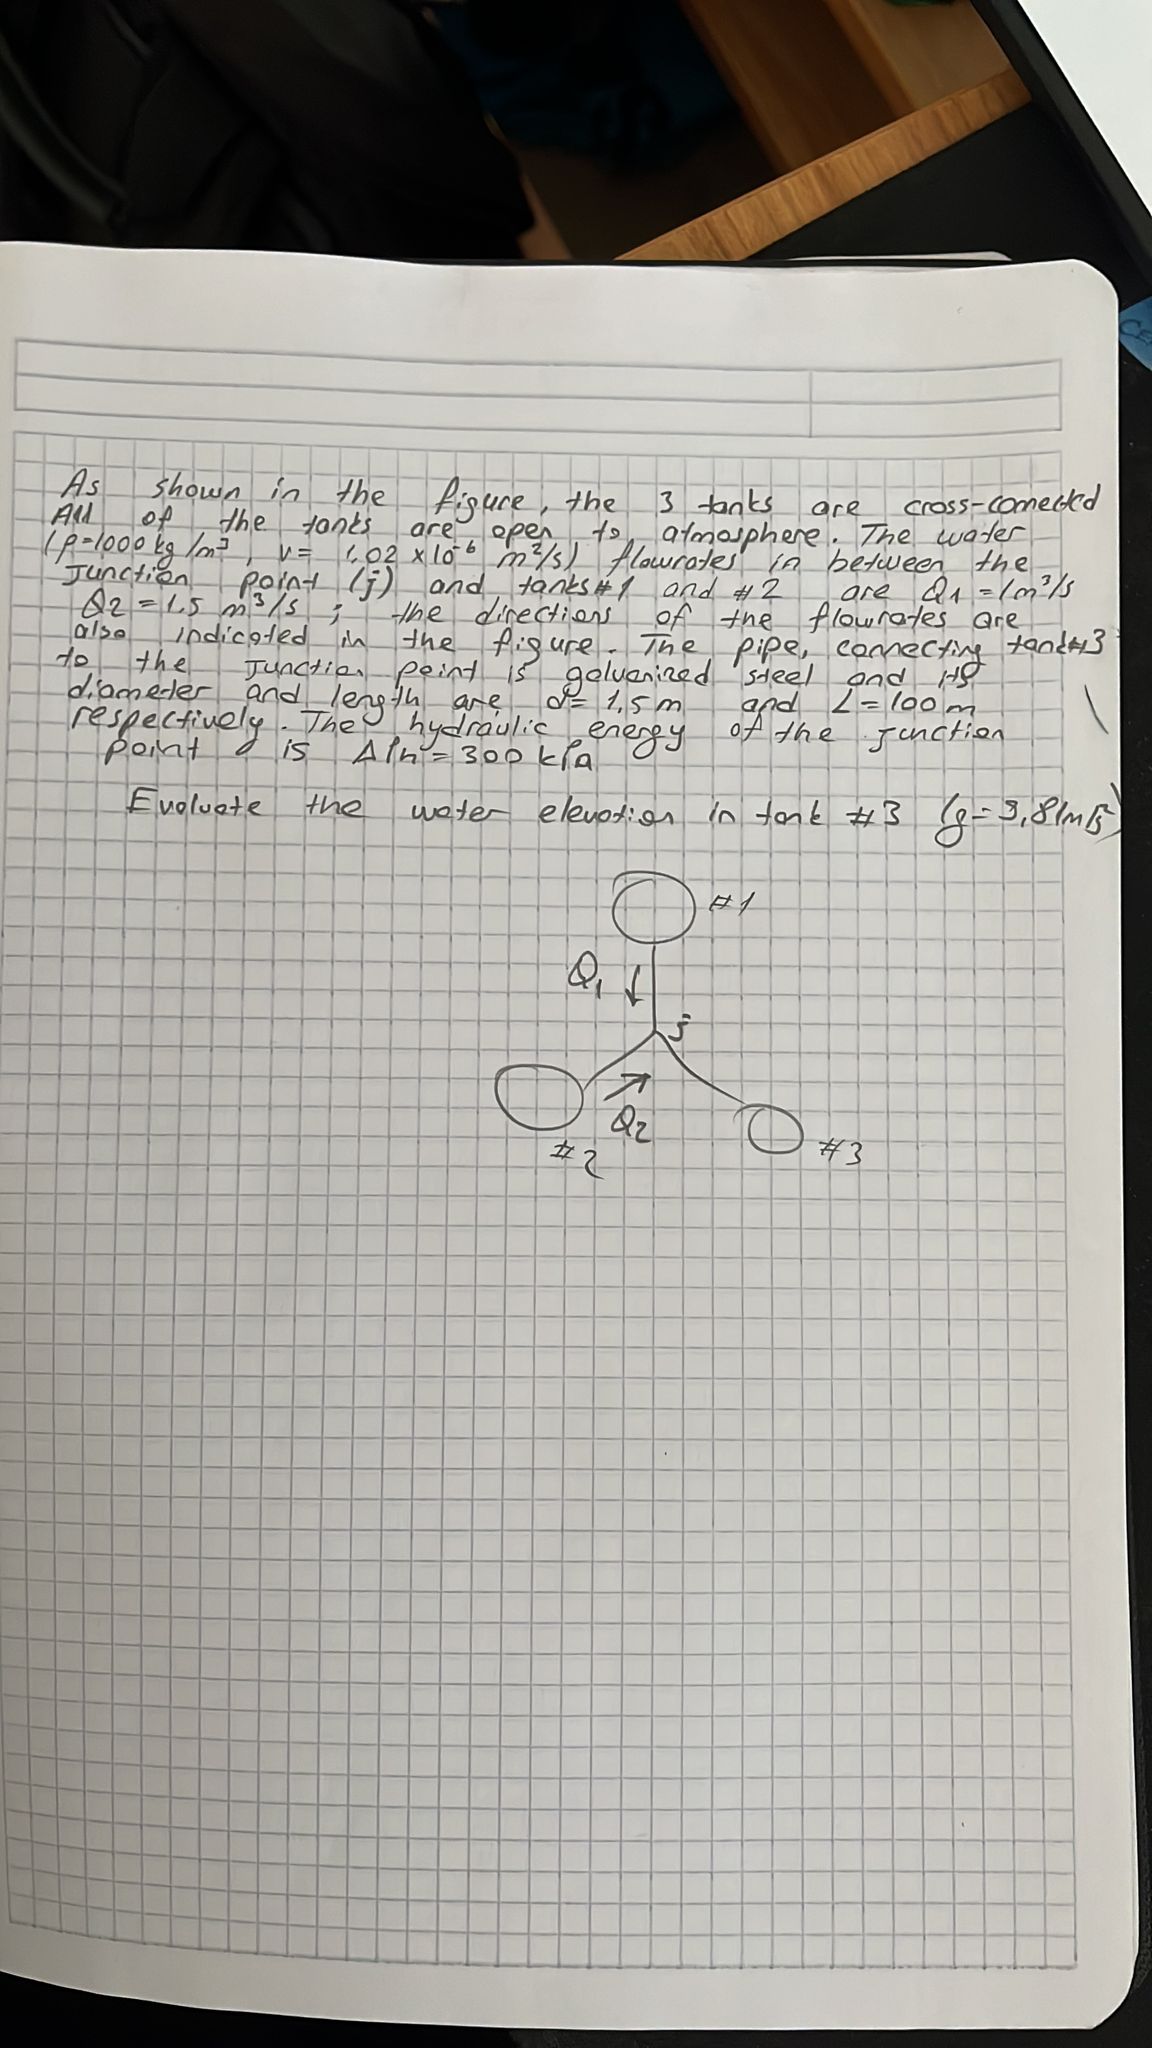 As shown in the figure, the 3 tanks are cross-connected
All of the tanks are open to atmosphere. The water
(ρ=1000 kg/m³, ν= 1,02 x10⁻⁶ m²/s) flowrates in between the
Junction point (j) and tanks #1 and #2 are Q1 = 1m³/s
Q2 = 1.5 m³/s ; the directions of the flowrates are
also indicated in the figure. The pipe, connecting tank#3
to the Junction point is galvanized steel and its
diameter and length are d= 1,5 m and L=100 m
respectively. The hydraulic energy of the junction
point is ΔPh = 300 kPa
Evaluate the water elevation in tank #3 (g=9,81m/s²)
#1
Q1 ↓
j
Q2
#2
#3